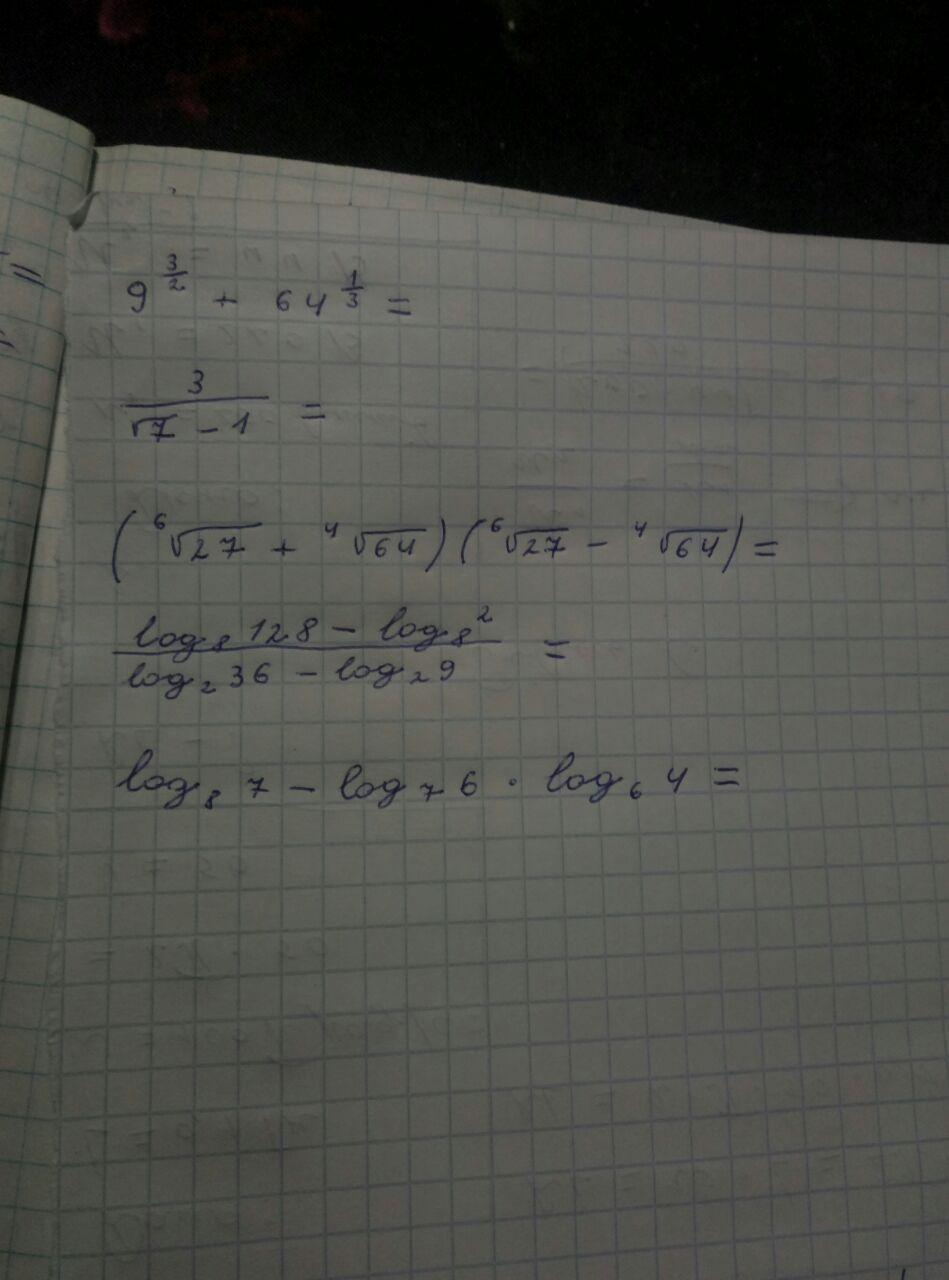 9^(3/2) + 64^(1/3) =
3/(√7 - 1) =
(⁶√27 + ⁴√64)(⁶√27 - ⁴√64) =
(log₈ 128 - log₈ 2)/(log₂ 36 - log₂ 9) =
log₈ 7 - log₇ 6 · log₆ 4 =